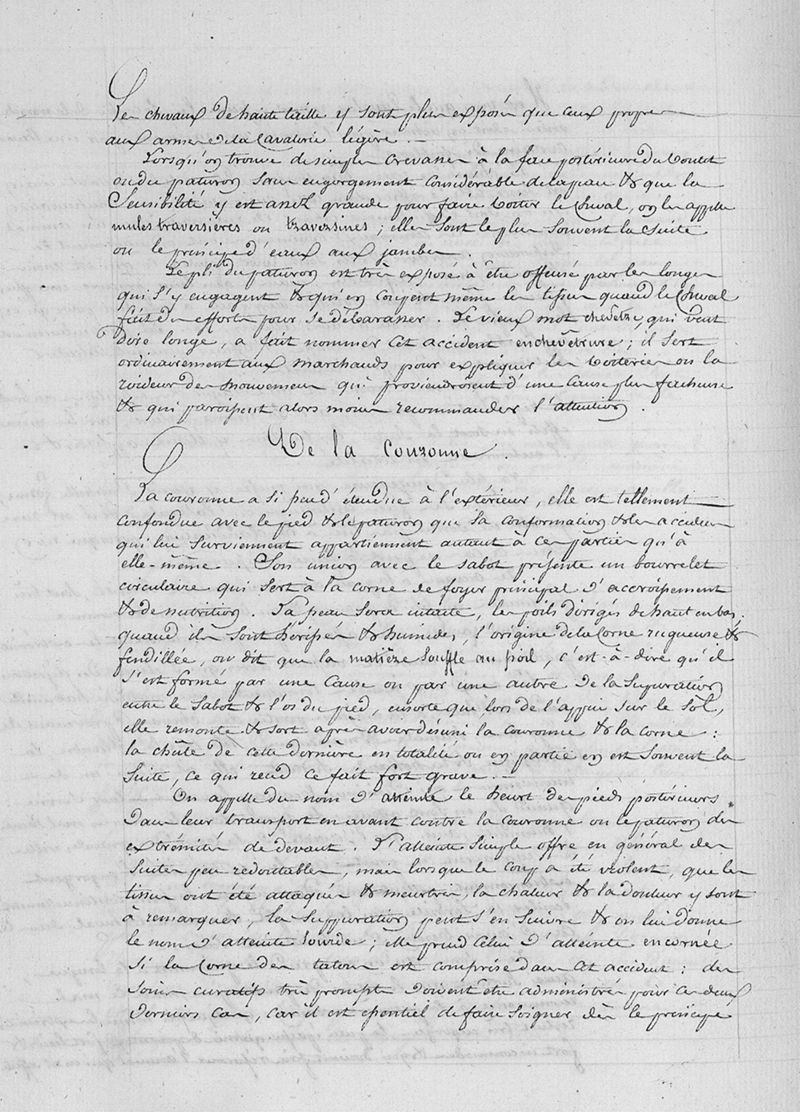 Les chevaux de haute taille y sont plus exposés que ceux propres
aux armes de la Cavalerie légère. —
Lorsqu'on trouve de simples Crevasses à la face postérieure du boulet
ou du paturon sans engorgement Considérable de la peau & que la
Sensibilité y est assez grande pour faire boiter le Cheval, on les appelle
mules traversières ou traversines; elles sont le plus souvent la suite
ou le principe d'eaux aux jambes.
Le pli du paturon est très exposé à être offensé par les longes
qui s'y engagent & qui en Coupent même les tissus quand le Cheval
fait des efforts pour se débarasser. Le vieux mot chevetre, qui veut
dire longe, a fait nommer cet accident enchevetrure; il sert
ordinairement aux marchands pour expliquer les boiteries ou la
roideur des mouvemens qui proviendroient d'une Cause plus facheuse
& qui paroissent alors moins recommander l'attention.
De la couronne.
La couronne a si peu d'étendue à l'extérieur, elle est tellement
confondue avec le pied & le paturon que sa conformation & les accidens
qui lui surviennent appartiennent autant à ces parties qu'à
elle-même. Son union avec le sabot présente un bourrelet
circulaire qui sert à la corne de foyer principal d'accroissement
& de nutrition. La peau sera intacte, les poils dirigés de haut en bas,
quand ils sont hérissés & humides, l'origine de la Corne rugueuse &
fendillée, on dit que la matière souffle au poil, c'est-à-dire qu'il
s'est formé par une cause ou par une autre de la suppuration
entre le sabot & l'os du pied, ensorte que lors de l'appui sur le sol,
elle remonte & sort après avoir désuni la couronne & la corne:
la chûte de cette dernière en totalité ou en partie en est souvent la
suite, ce qui rend ce fait fort grave. —
On appelle du nom d'atteinte le heurt des pieds postérieurs
dans leur transport en avant contre la couronne ou le paturon des
extrémités de devant. L'atteinte simple offre en général des
suites peu redoutables, mais lorsque le coup a été violent, que les
tissus ont été attaqués & meurtris, la chaleur & la douleur y sont
à remarquer, la suppuration peut s'en suivre & on lui donne
le nom d'atteinte sourde; elle prend celui d'atteinte encornée
si la Corne des talons est comprise dans cet accident: des
soins curatifs très prompts doivent être administrés pour ces deux
derniers cas, car il est essentiel de faire soigner dès le principe